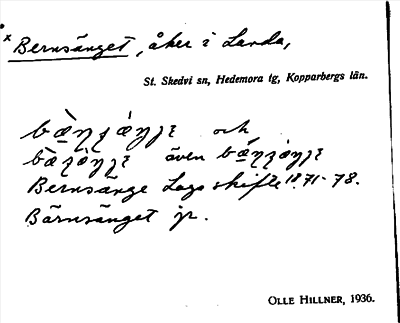 × Bernsänget, åker i Landa,
St. Skedvi sn, Hedemora tg, Kopparbergs län.
och
även
Bernsänge Laga skifte 1871-78.
Bärnsänget jr.
OLLE HILLNER, 1936.